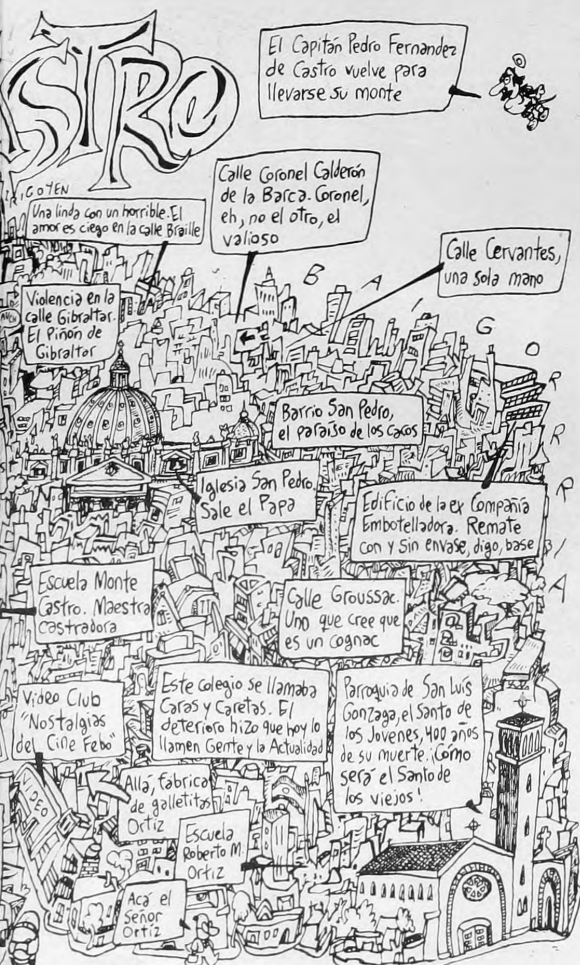 ASTRO
El Capitán Pedro Fernandez
de Castro vuelve para
llevarse su monte
IRIGOYEN
Una linda con un horrible. El
amor es ciego en la calle Braille
Calle Coronel Calderón
de la Barca. Coronel,
eh, no el otro, el
valioso
Calle Cervantes,
una sola mano
BAIGORRIA
Violencia en la
calle Gibraltar.
El Piñón de
Gibraltar
Barrio San Pedro,
el paraíso de los cacos
Iglesia San Pedro.
Sale el Papa
Edificio de la ex Compañía
Embotelladora. Remate
Con y Sin envase, digo, base
Escuela Monte
Castro. Maestra
Castradora
Calle Groussac.
Uno que cree que
es un cognac
Video Club
"Nostalgias
del Cine Febo"
Este colegio se llamaba
Caras y Caretas. El
deterioro hizo que hoy lo
llamen Gente y la Actualidad
Parroquia de San Luís
Gonzaga, el Santo de
los Jovenes, 400 años
de su muerte. ¡Cómo
será el Santo de
los viejos!
Allá, fabrica
de galletitas
Ortiz
Escuela
Roberto M.
Ortiz
VIDEO
Acá el
Señor
Ortiz